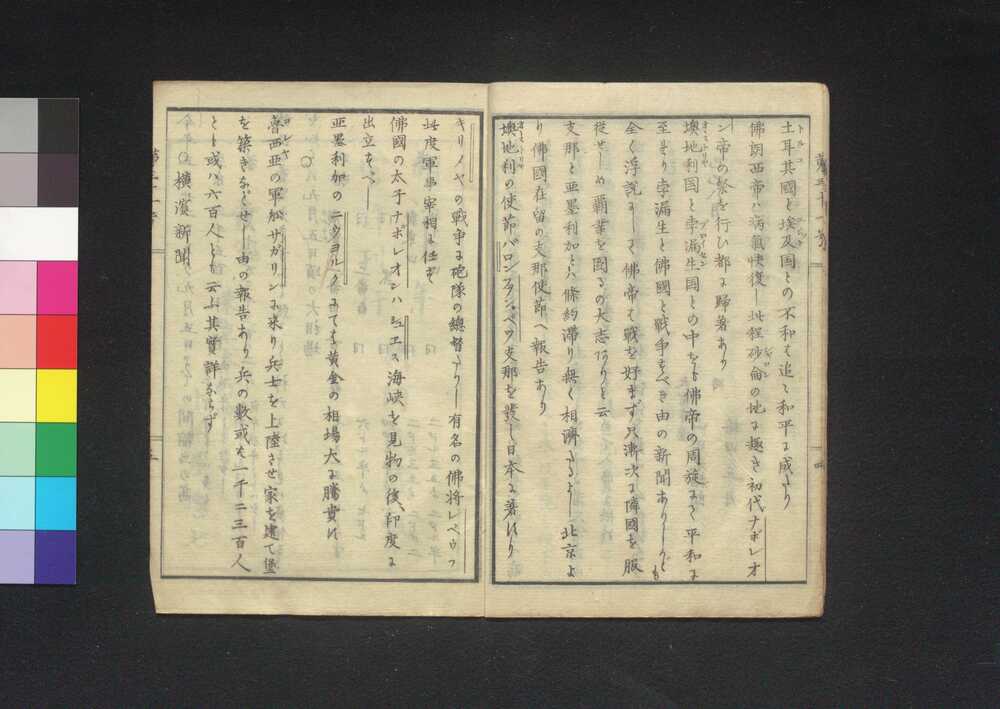 土耳其國と埃及国との不和も追々和平に成たり
佛朗西帝ハ病氣快復し此程砂侖の地に趣き初代ナポレオ
ン帝の祭を行ひ都に歸著あり
墺地利国と孛漏生国との中をも佛帝の周旋にて平和に
至るより孛漏生と佛國と戦争すべき由の新聞ありしかども
全く浮説にして佛帝も戦を好まず只漸次に隣國を服
従せしめ覇業を圖るの大志なりと云
支那と亜墨利加とハ條約滞り無く相濟たるよし北京よ
り佛國在留の支那使節へ報告あり
墺地利の使節バロンフヲンペツ支那を發し日本に著けり
キリノヤの戦争に砲隊の總督たりし有名の佛将レベウフ
此度軍事宰相に任ず
佛國の太子ナポレオンハシユエス海峡を見物の後、印度に
出立すべし
亜墨利加のニウヨルクにても黄金の相場大に騰貴せり
魯西亜の軍船サガリンに来り兵士を上陸させ家を建て堡
を築きなどせし由の報告あり兵の數或ハ一千二三百人
とし或ハ六百人とも云ふ其實詳ならず
○横濱新聞